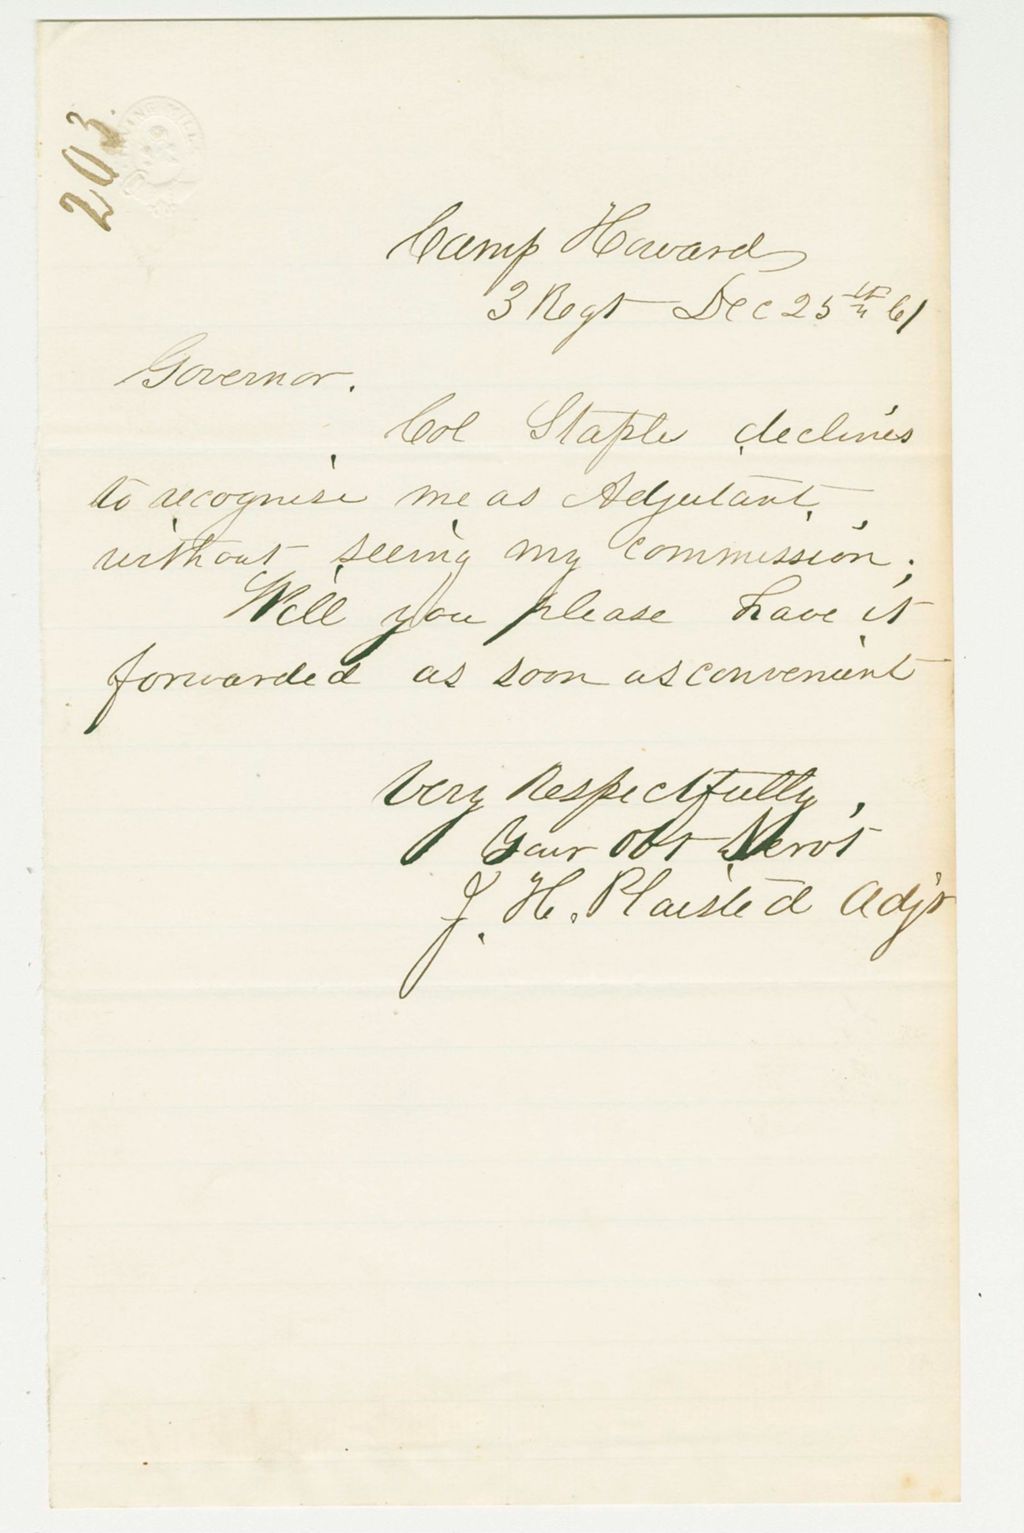 203.
Camp Howard
3 Regt Dec 25th 61
Governor.
Col Staple declines
to recognise me as Adjutant
without seeing my commission.
Will you please have it
forwarded as soon as convenient
Very Respectfully,
Your Obt Servt
J. H. Plaisted Adjt